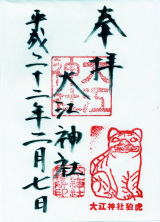 奉拝
大江神社
平成二十二年二月七日
大江神社狛虎